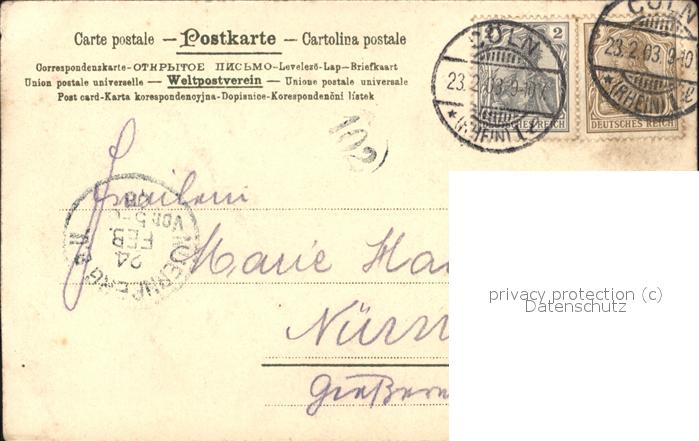 Carte postale — Postkarte — Cartolina postale
Correspondenskarte-ОТКРЫТОЕ ПИСЬМО-Levelező-Lap-Briefkaart
Union postale universelle — Weltpostverein — Unione postale universale
Post card-Karta korespondencyjna-Dopisnice-Korespondenční lístek
CÖLN
23.2.03 9-10V.
*(RHEIN)1*
2
DEUTSCHES REICH
CÖLN
23.2.03 9-10
*(RHEIN)
DEUTSCHES REICH
102
Fräulein
NUERNBERG II
24
FEB.
VOR 5-6
Marie Ha
Nürn
privacy protection (c)
Datenschutz